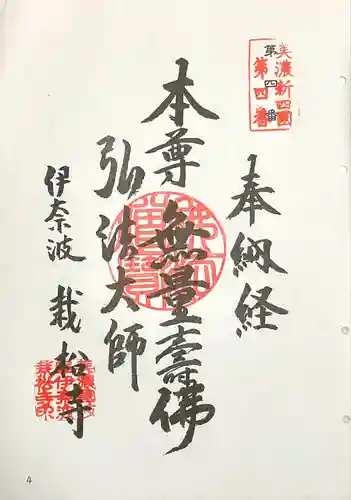 美濃新四國
第四番
第四番
奉納経
本尊無量壽佛
弘法大師
伊奈波
栽松寺
4